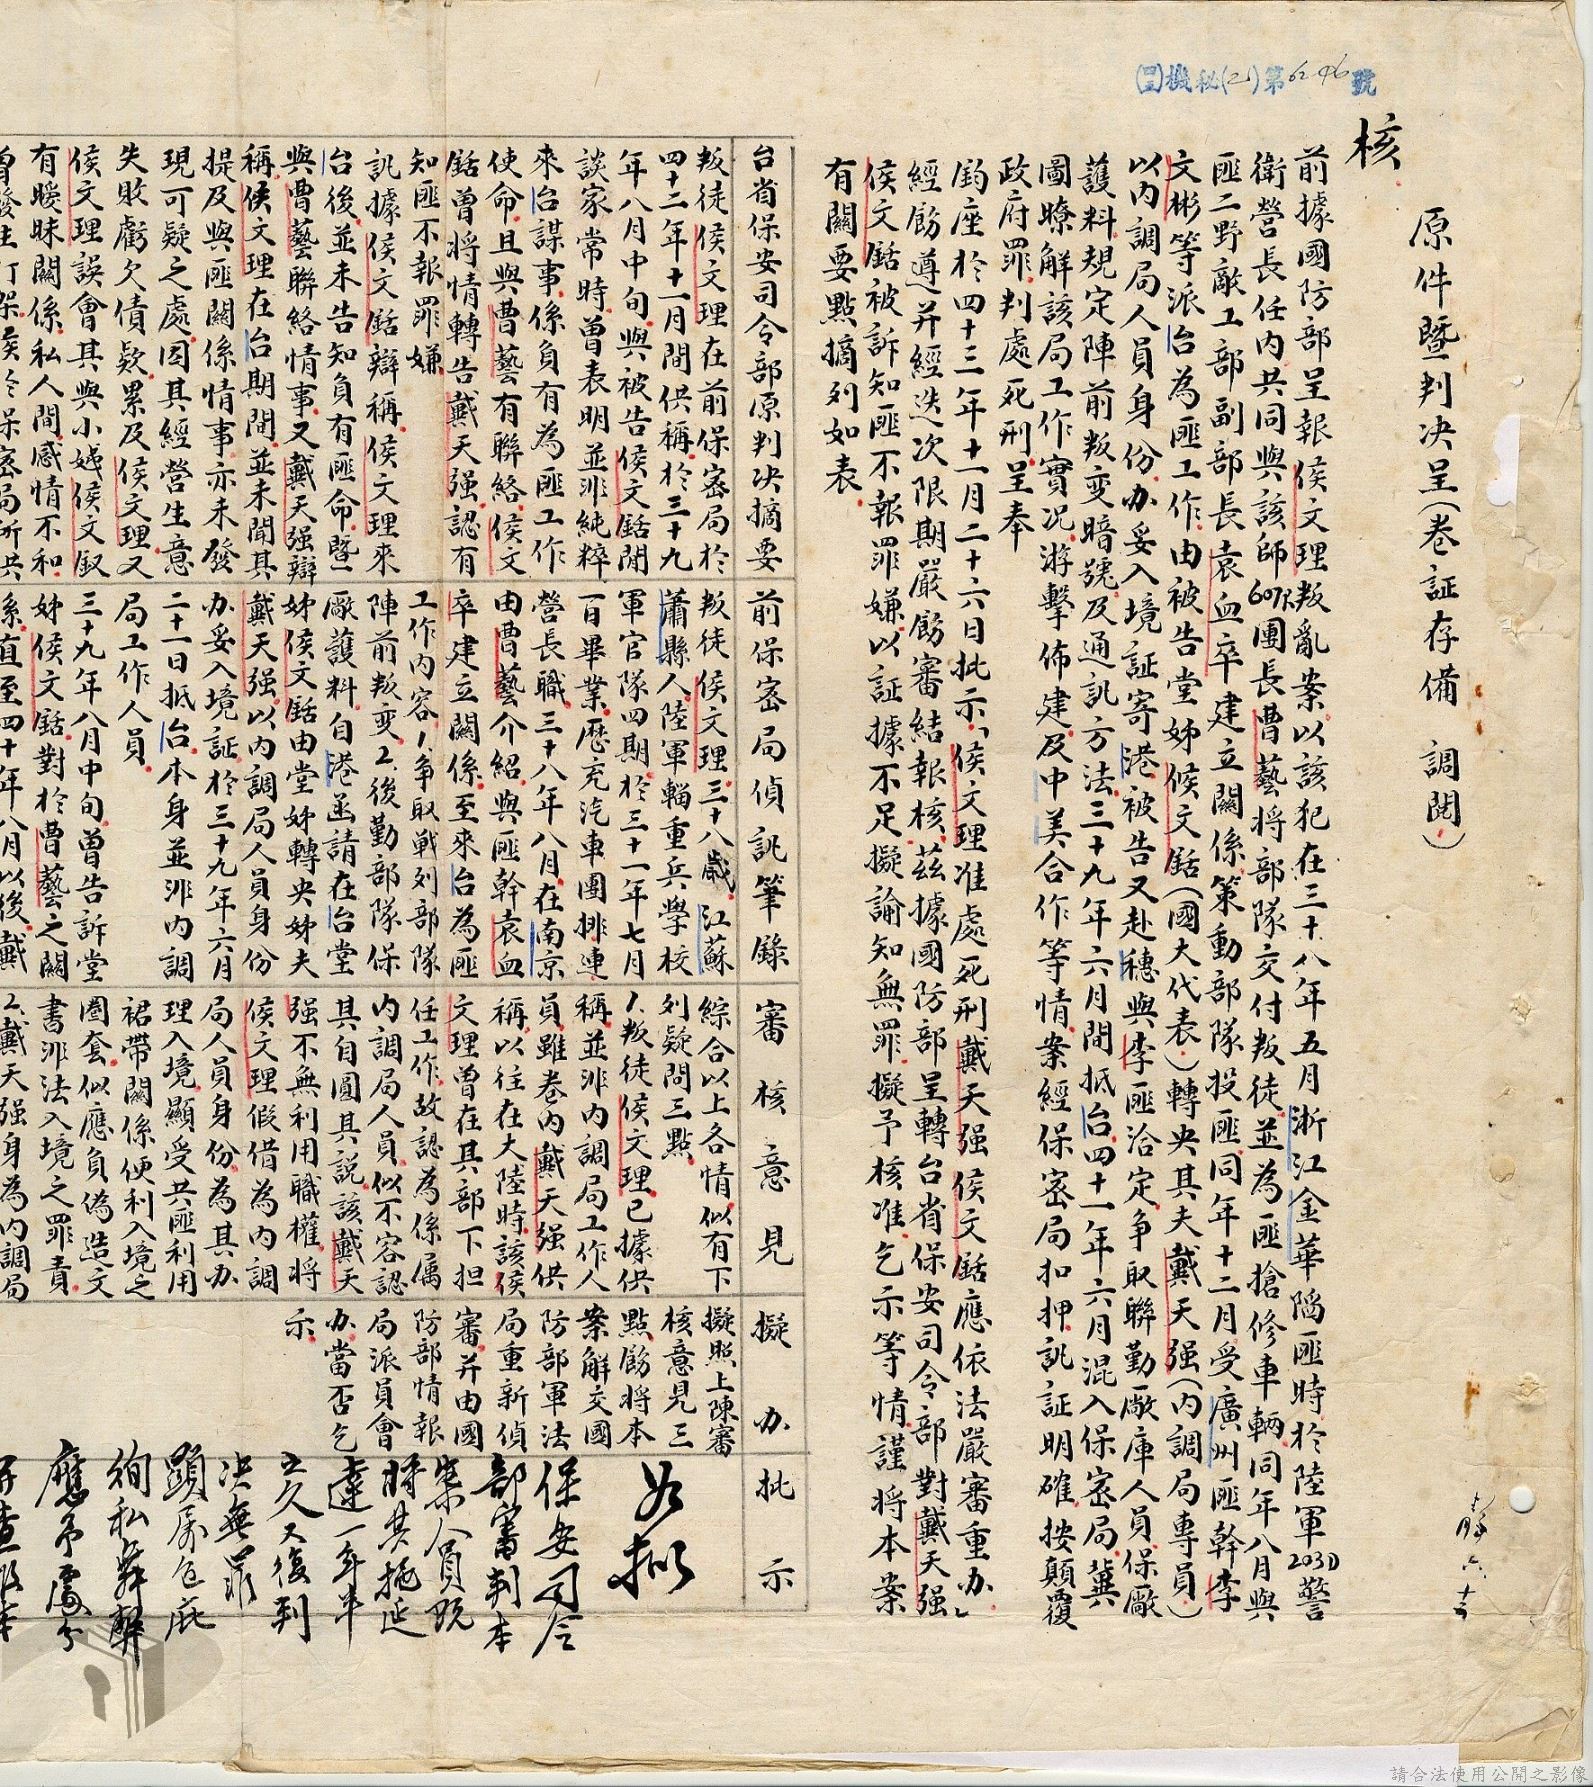 機秘(21)第6246號
核
原件暨判決呈(卷証存備 調閱)
前據國防部呈報侯文理叛亂案以該犯在三十八年五月浙江金華陷匪時於陸軍203D警
衛營長任內共同與該師607R團長曹藝將部隊交付叛徒並為匪搶修車輛同年八月與
匪二野敵工部副部長袁血卒建立關係策動部隊投匪同年十二月受廣州匪幹李
文彬等派台為匪工作由被告堂姊侯文䤈(國大代表)轉央其夫戴天强(內調局專員)
以內調局人員身份办妥入境証寄港被告又赴穗與李匪洽定争取聯勤廠庫人員保廠
護料規定陣前叛变暗號及通訊方法三十九年六月間抵台四十一年六月混入保密局冀
圖瞭解該局工作實况游擊佈建及中美合作等情案經保密局扣押訊証明確按顛覆
政府罪判處死刑呈奉
鈞座於四十三年十一月二十六日批示「侯文理准處死刑戴天强侯文䤈應依法嚴審重办」
經飭遵并經迭次限期嚴飭審結報核茲據國防部呈轉台省保安司令部對戴天强
侯文䤈被訴知匪不報罪嫌以証據不足擬諭知無罪擬予核准乞示等情謹將本案
有關要點摘列如表
台省保安司令部原判決摘要
叛徒侯文理在前保密局於
四十二年十一月間供稱於三十九
年八月中旬與被告侯文䤈閒
談家常時曾表明並非純粹
來台謀事係負有為匪工作
使命且與曹藝有聯絡侯文
䤈曾將情轉告戴天强認有
知匪不報罪嫌
訊據侯文䤈辯稱侯文理來
台後並未告知負有匪命暨
與曹藝聯絡情事又戴天强辯
稱侯文理在台期間並未聞其
提及與匪關係情事亦未發
現可疑之處因其經營生意
失敗虧欠債欵累及侯文理又
侯文理誤會其與小姨侯文釵
有曖昧關係私人間感情不和
前保密局偵訊筆錄
叛徒侯文理三十八歲江蘇
蕭縣人陸軍輜重兵學校
軍官隊四期於三十一年七月
一百畢業歷充汽車團排連
營長職三十八年八月在南京
由曹藝介紹與匪幹袁血
卒建立關係至來台為匪
工作內容1.争取戰列部隊
陣前叛变2.後勤部隊保
廠護料自港函請在台堂
姊侯文䤈由堂姊轉央姊夫
戴天强以內調局人員身份
办妥入境証於三十九年六月
二十一日抵台本身並非內調
局工作人員
三十九年八月中旬曾告訴堂
姊侯文䤈對於曹藝之關
係直至四十年八月以後戴
審核意見
綜合以上各情似有下
列疑問三點
1.叛徒侯文理已據供
稱並非內調局工作人
員雖卷內戴天强供
稱以往在大陸時該侯
文理曾在其部下担
任工作故認為係属
內調局人員似不容認
其自圓其說該戴天
强不無利用職權將
侯文理假借為內調
局人員身份為其办
理入境顯受共匪利用
裙帶關係便利入境之
圈套似應負偽造文
書非法入境之罪責
2.戴天强身為內調局
擬办
擬照上陳審
核意見三
點飭將本
案解交國
防部軍法
局重新偵
審并由國
防部情報
局派員會
办當否乞
示
批示
如拟
保安司令
部審判本
案人員既
將其拖延
達一年半
之久又復判
决無罪
顯屬包庇
徇私舞弊
應予處分
請合法使用公開之影像